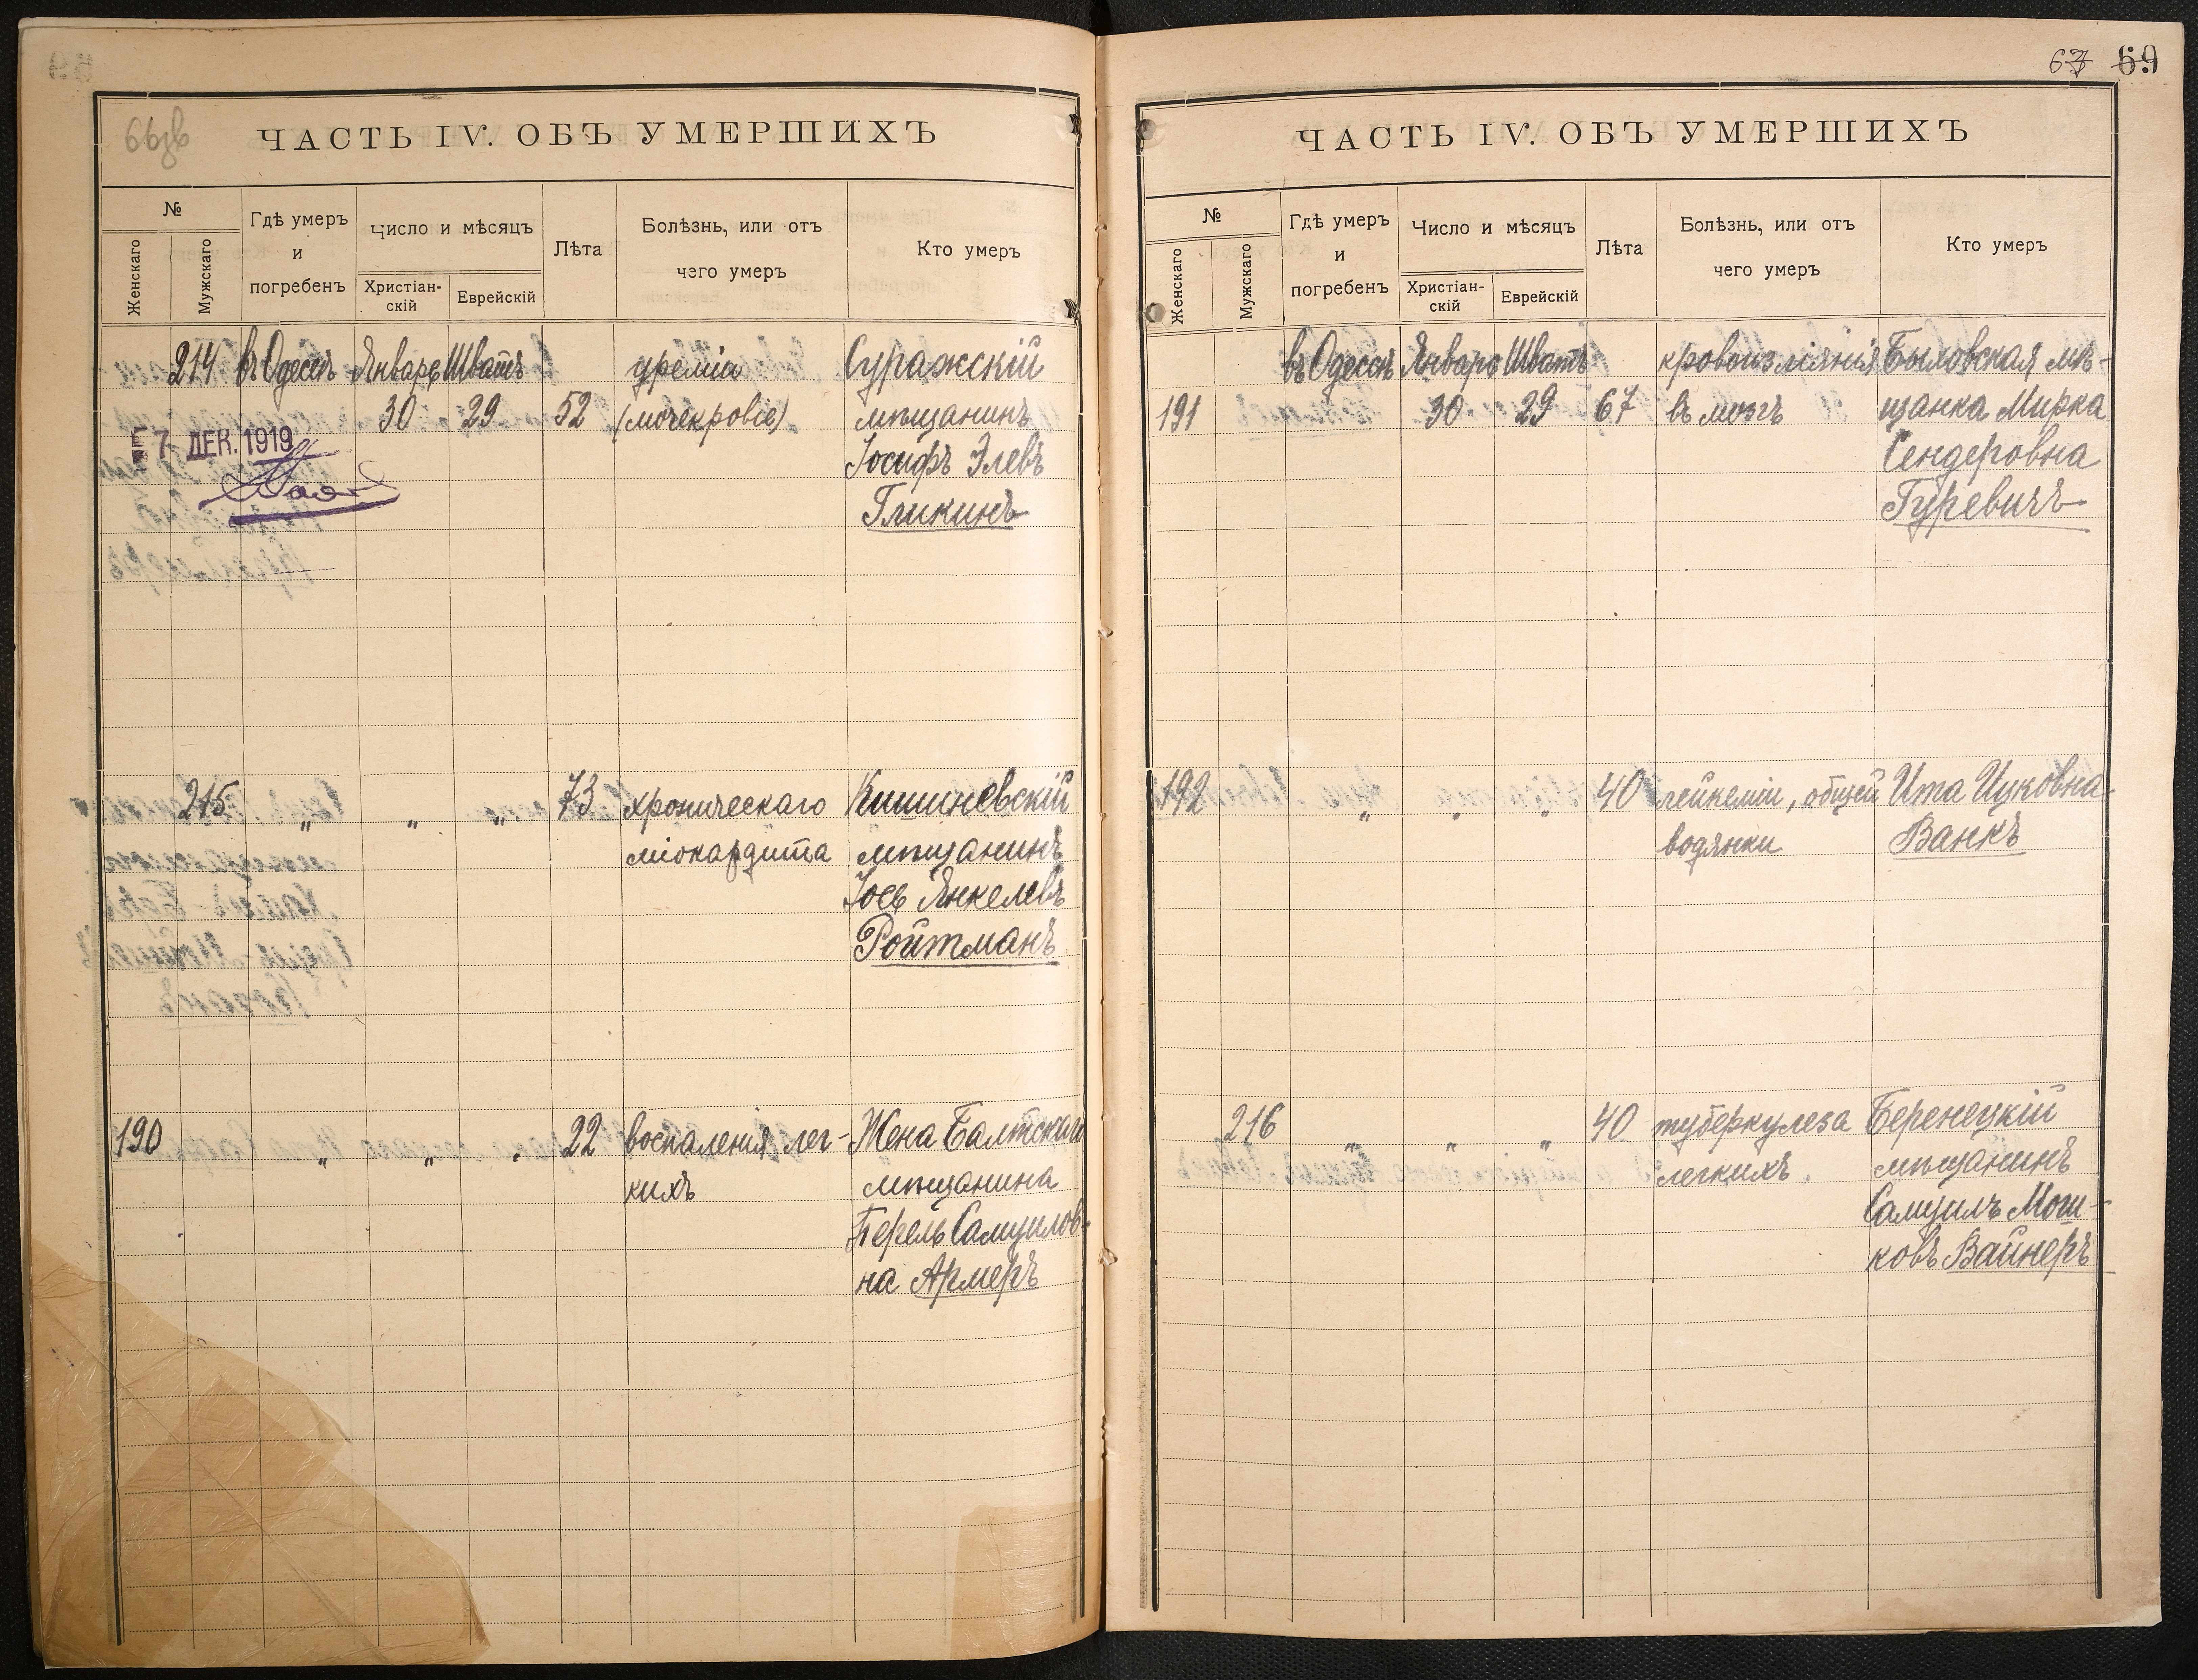 66зв
ЧАСТЬ IV. ОБЪ УМЕРШИХЪ
№
Женскаго
Мужскаго
Гдѣ умеръ
и
погребенъ
Число и мѣсяцъ
Христіан-
скій
Еврейскій
Лѣта
Болѣзнь, или отъ
чего умеръ
Кто умеръ
214 въ Одессѣ Январь Шватъ уремія Суражскій
30 29 52 (мочекровіе) мѣщанинъ
7 ДЕК. 1919
Іосифъ Элевъ
Гликинъ
215 „ „ „ 73 хроническаго Кишиневскій
міокардита мѣщанинъ
Іось Янкелевъ
Ройтманъ
190 „ „ „ 22 воспаленія лег- Жена Балтскаго
кихъ мѣщанина
Перель Самуилов-
на Армеръ
67 69
ЧАСТЬ IV. ОБЪ УМЕРШИХЪ
№
Женскаго
Мужскаго
Гдѣ умеръ
и
погребенъ
Число и мѣсяцъ
Христіан-
скій
Еврейскій
Лѣта
Болѣзнь, или отъ
чего умеръ
Кто умеръ
въ Одессѣ Январь Шватъ кровоизліянія Быховская мѣ-
191 30 29 67 въ мозгъ щанка Мирка
Сендеровна
Гуревичъ
192 „ „ „ 40 лейкеміи, общей Ита Ицковна
водянки Ванкъ
216 „ „ „ 40 туберкулеза Беренецкій
легкихъ. мѣщанинъ
Самуилъ Мош-
ковъ Вайнеръ